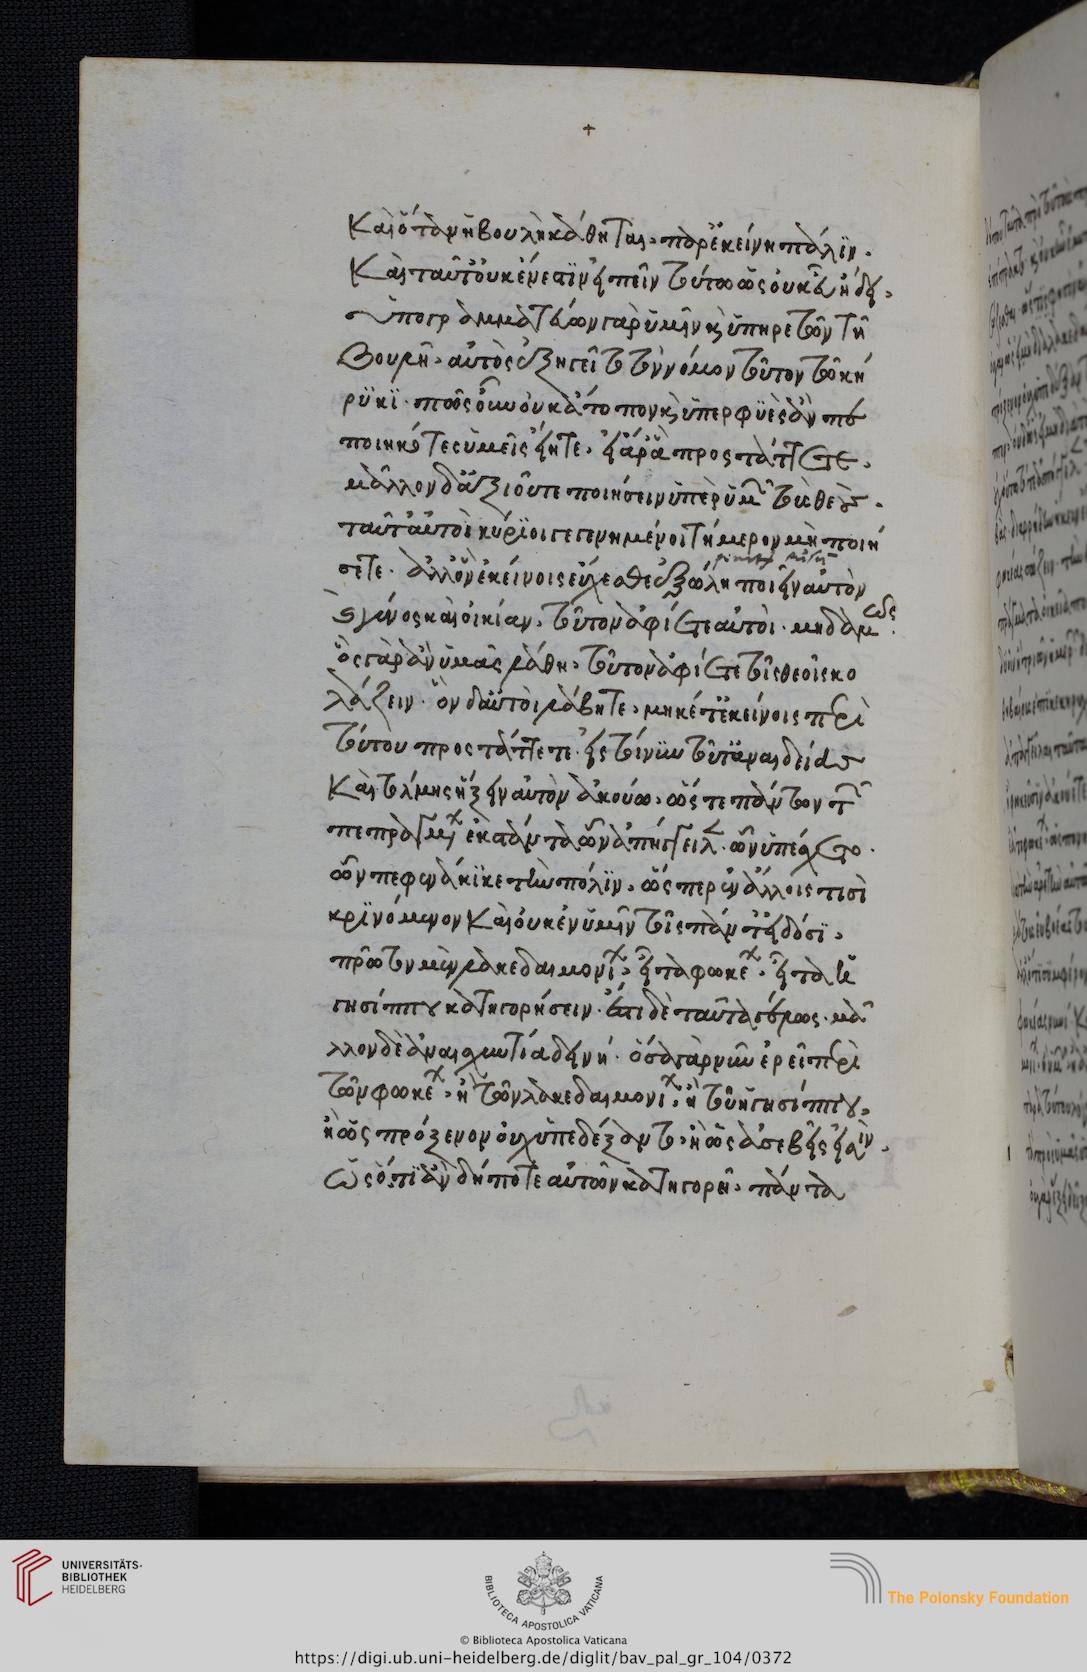 +
καὶ ὅταν ἡ βουλὴ κάθηται, παρ' ἐκείνῃ πάλιν.
καὶ ταῦτ' οὐκ ἔνεστιν εἰπεῖν τούτω ὡς οὐκ
ὑπογραμματεύων γὰρ ὑμῖν κ ὑπηρετῶν τῆ
βουλῆ, αὐτὸς ἐξηγεῖτο τὸν νόμον τοῦτον τῶ κή
ρυκι. πῶς οὖν οὐκ ἄτοπον κ ὑπερφυὲς ἂν πε
ποιηκότες ὑμεῖς εἴητε, εἰ ἄρ' ἃ προστάττετε,
μᾶλλον δ' ἀξιοῦτε ποιήσειν ὑπὲρ ὑμῶν τοὺς θεούς.
ταῦτ' αὐτοὶ κύριοι γεγενημένοι τήμερον μὴ ποιή
σετε. ἀλλ' ὃν ἐκείνοις εὔχεσθε ἐξώλη ποιεῖν αὐτὸν
κ γένος καὶ οἰκίαν, τοῦτον ἀφίετε αὐτοὶ. μηδαμῶς.
ὃς γὰρ ἂν ὑμᾶς λάθη, τοῦτον ἀφίετε τοῖς θεοῖς κο
λάζειν. ὃν δ' αὐτοὶ λάβητε, μηκέτ' ἐκείνοις περὶ
τούτου προστάττετε. εἰς τοίνυν τοῦτ' ἀναιδείας
καὶ τόλμης ἥξειν αὐτὸν ἀκούω, ὥστε πάντων τῶν
πεπραγμένων ἐκστάντα ὧν ἀπήγγειλεν. ὧν ὑπέσχετο.
ὧν πεφενάκικε τὴν πόλιν, ὥσπερ ἐν ἄλλοις τισὶ
κρινόμενον καὶ οὐκ ἐν ὑμῖν τοῖς πάντ' εἰδόσι,
πρῶτον μὲν λακεδαιμονίων, εἶτα φωκέων, εἶτα ἡ
γησίππου κατηγορήσειν. ἔστι δὲ ταῦτα γέλως. μᾶ
λλον δὲ ἀναισχυντία δεινή. ὅσα γὰρ νῦν ἐρεῖ περὶ
τῶν φωκέων, ἢ τῶν λακεδαιμονίων, ἢ τοῦ ἡγησίππου,
ἢ ὡς πρόξενον οὐχ ὑπεδέξαντο, ἢ ὡς ἀσεβεῖς εἰσιν.
ὡς ὅ,τι ἂν δήποτε αὐτῶν κατηγορῆ, πάντα
UNIVERSITÄTS-
BIBLIOTHEK
HEIDELBERG
BIBLIOTECA APOSTOLICA VATICANA
The Polonsky Foundation
© Biblioteca Apostolica Vaticana
https://digi.ub.uni-heidelberg.de/diglit/bav_pal_gr_104/0372